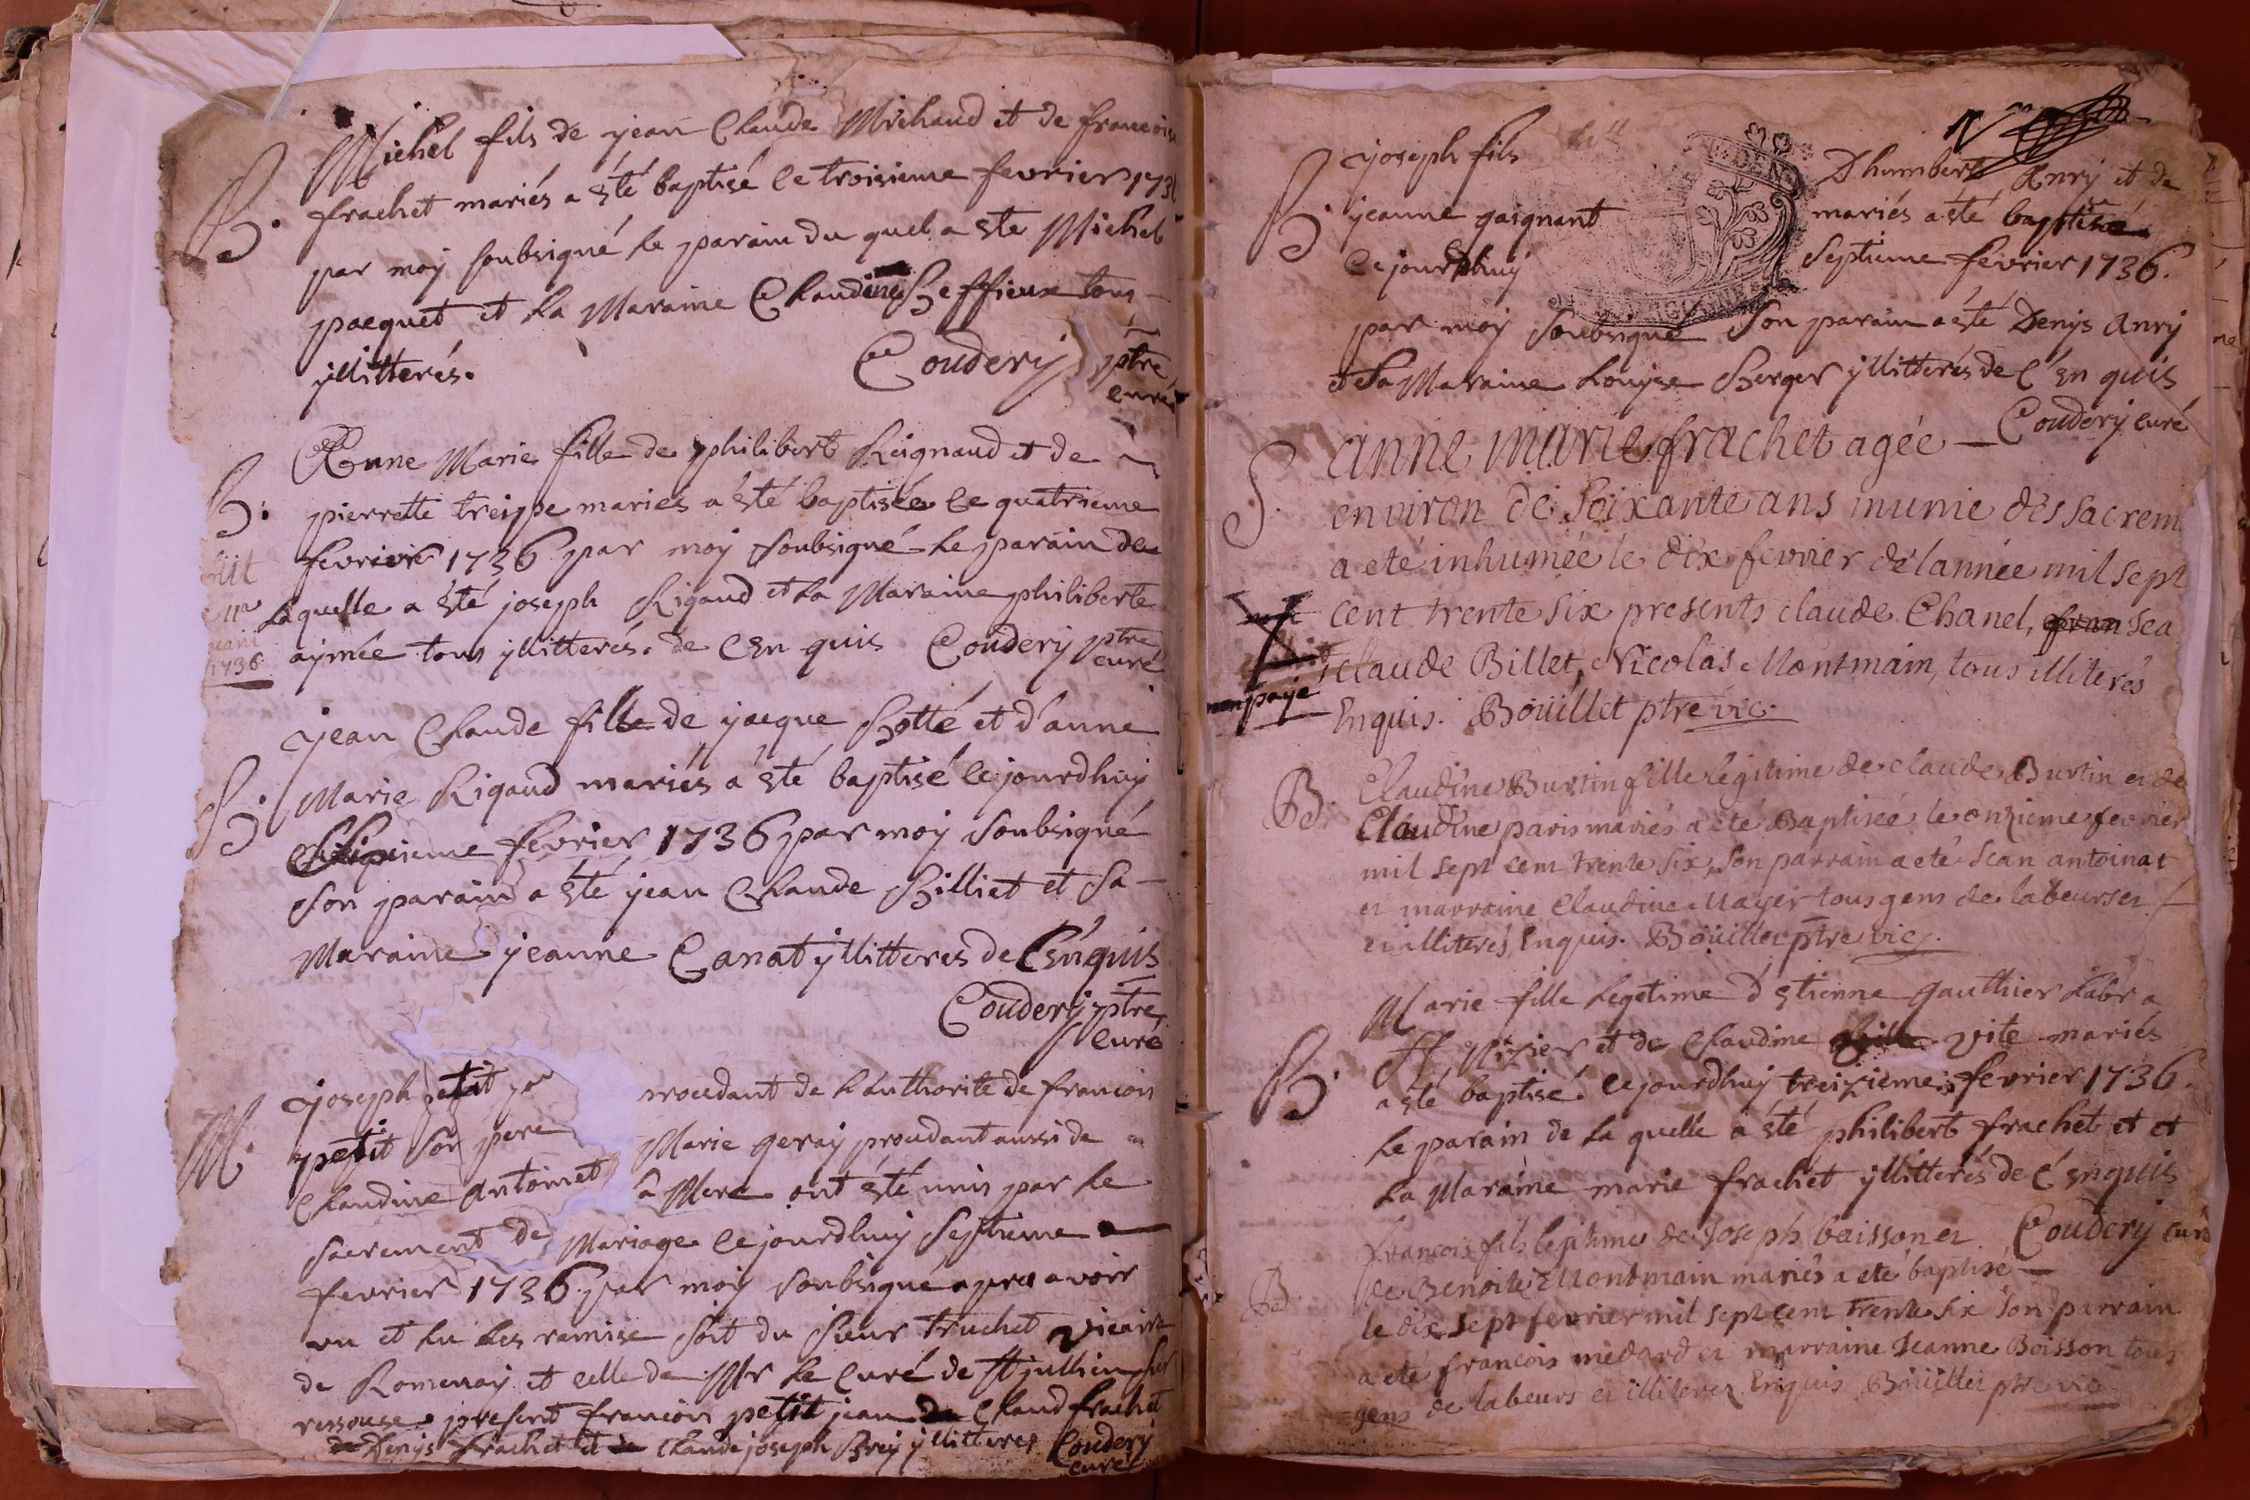 B. Michel fils de jean Claude Michaud et de francoise
frachet mariés a été baptisé le troisieme fevrier 173
par moy soubsigné le parain du quel a ste Michel
pacquet et la Maraine Claudine Beffieux tous
yllitterés. Coudery ptre
curé
B. Anne Marie fille de philibert Reignaud et de
pierrette treipe mariés a été baptisée le quatrieme
fevrier 1736 par moy soubsigné le parain de
laquelle a été joseph Rigaud et la Maraine philiberte
aymée tous yllitterés. de C'En quis Coudery ptre
curé
1736
B. jean Claude fille de jacque Botté et d'anne
Marie Rigaud mariés a été baptisé cejourdhuy
fevrier 1736 par moy soubsigné
son parain a été jean Claude Billiet et sa
Maraine jeanne Canat yllitteres de C'Enquis
Coudery ptre
curé
M. joseph petit procedant de L'Authorité de francois
petit son pere Marie geray procedant aussi de
Claudine Antoinet sa Mere ont été unis par le
sacrement de Mariage cejourdhuy septieme
fevrier 1736 par moy soubsigné apres avoir
vu et lu les remise soit du sieur truchet vicaire
de Romenay et celle de Mr le curé de st jullien sur
ressouse present francois petit jean Claud frachet
Denys frachet et Claude joseph Brey yllitteres Coudery
curé
B. joseph fils Dhumbert Anry et de
jeanne gaignant mariés a été baptisé
cejourdhuy septieme fevrier 1736.
par moy soubsigné son parain a été Denys Anry
et sa Maraine Louyse Berger yllitterés de C'En quis
Coudery curé
S. anne marie frachet agée
environ de soixante ans munie des sacrem
a eté inhumée le dix fevrier de l'année mil sept
cent trente six presents claude Chanel,
claude Billet, Nicolas Montmain, tous illiterés
Enquis. Boüillet ptre vic.
non payé
B. Claudine Burtin fille legitime de claude Burtin et de
Claudine paris mariés a eté Baptisée le onzieme fevrier
mil sept cent trente six, son parrain a eté Jean antoinat
et marraine Claudine Mayer tous gens de labeurs et
et illiterés, Enquis. Boüillet ptre vic.
B. Marie fille Legetime d'Etienne gauthier Labr a
St Nizier et de Claudine vite mariés
a été baptisé cejourdhuy treizieme fevrier 1736.
Le parain de la quelle a été philibert frachet et et
La Maraine marie frachet yllitterés de C'Enquis
Coudery curé
B. francois fils legitime de Joseph boisson et
de Benoite Montmain mariés a eté baptisé
le dix sept fevrier mil sept cent trente six son parrain
a eté francois medard et marraine Jeanne Boisson tous
gens de labeurs et illiterez Enquis Boüillet ptre vic